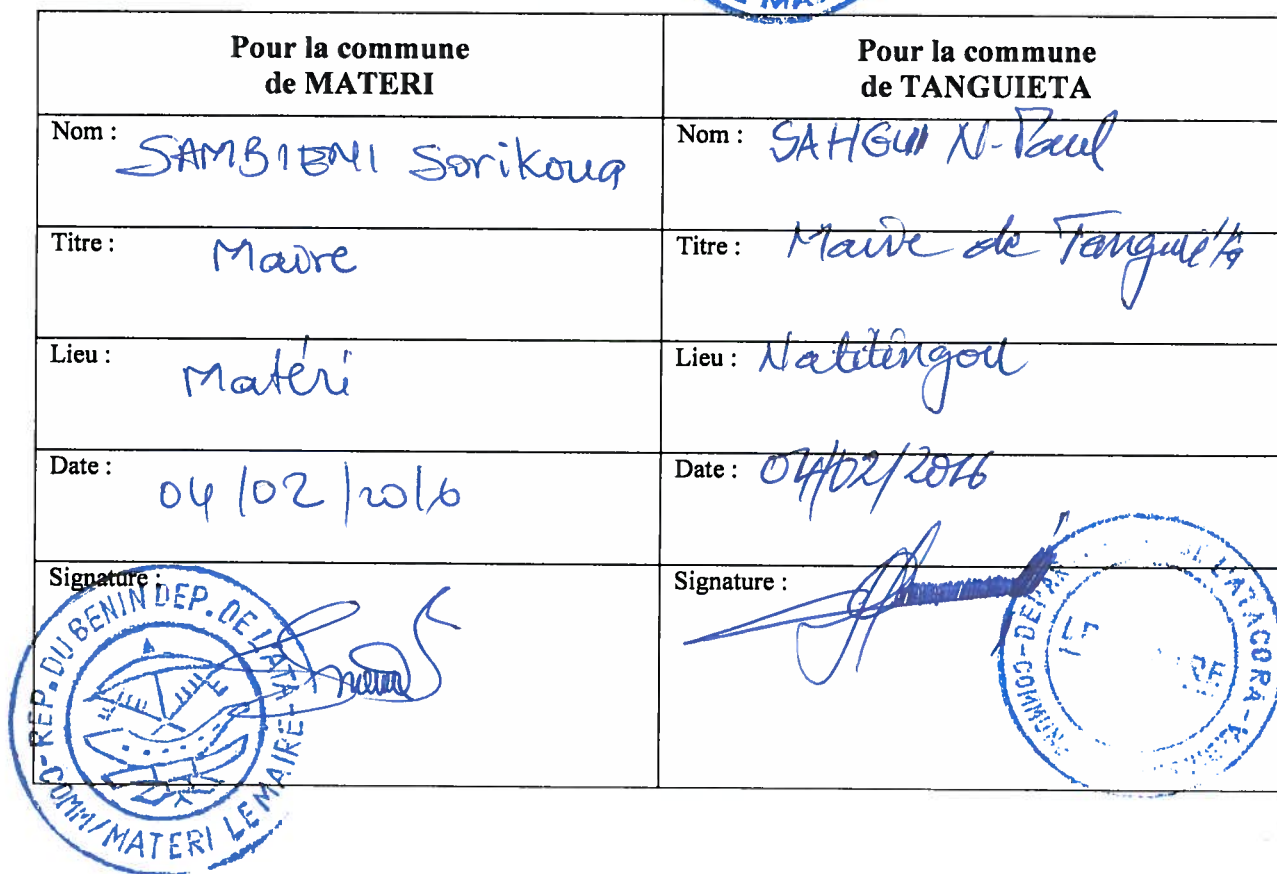 MA
Pour la commune
de MATERI
Pour la commune
de TANGUIETA
Nom : SAMBIENI Sorikoua
Nom : SAHGUI N-Paul
Titre : Maire
Titre : Maire de Tanguiéta
Lieu : Matéri
Lieu : Natitingou
Date : 04/02/2016
Date : 04/02/2016
Signature :
Signature :
REP. DU BENIN DEP. DE L'ATA
COMM/MATERI LE MAIRE
L'ATACORA